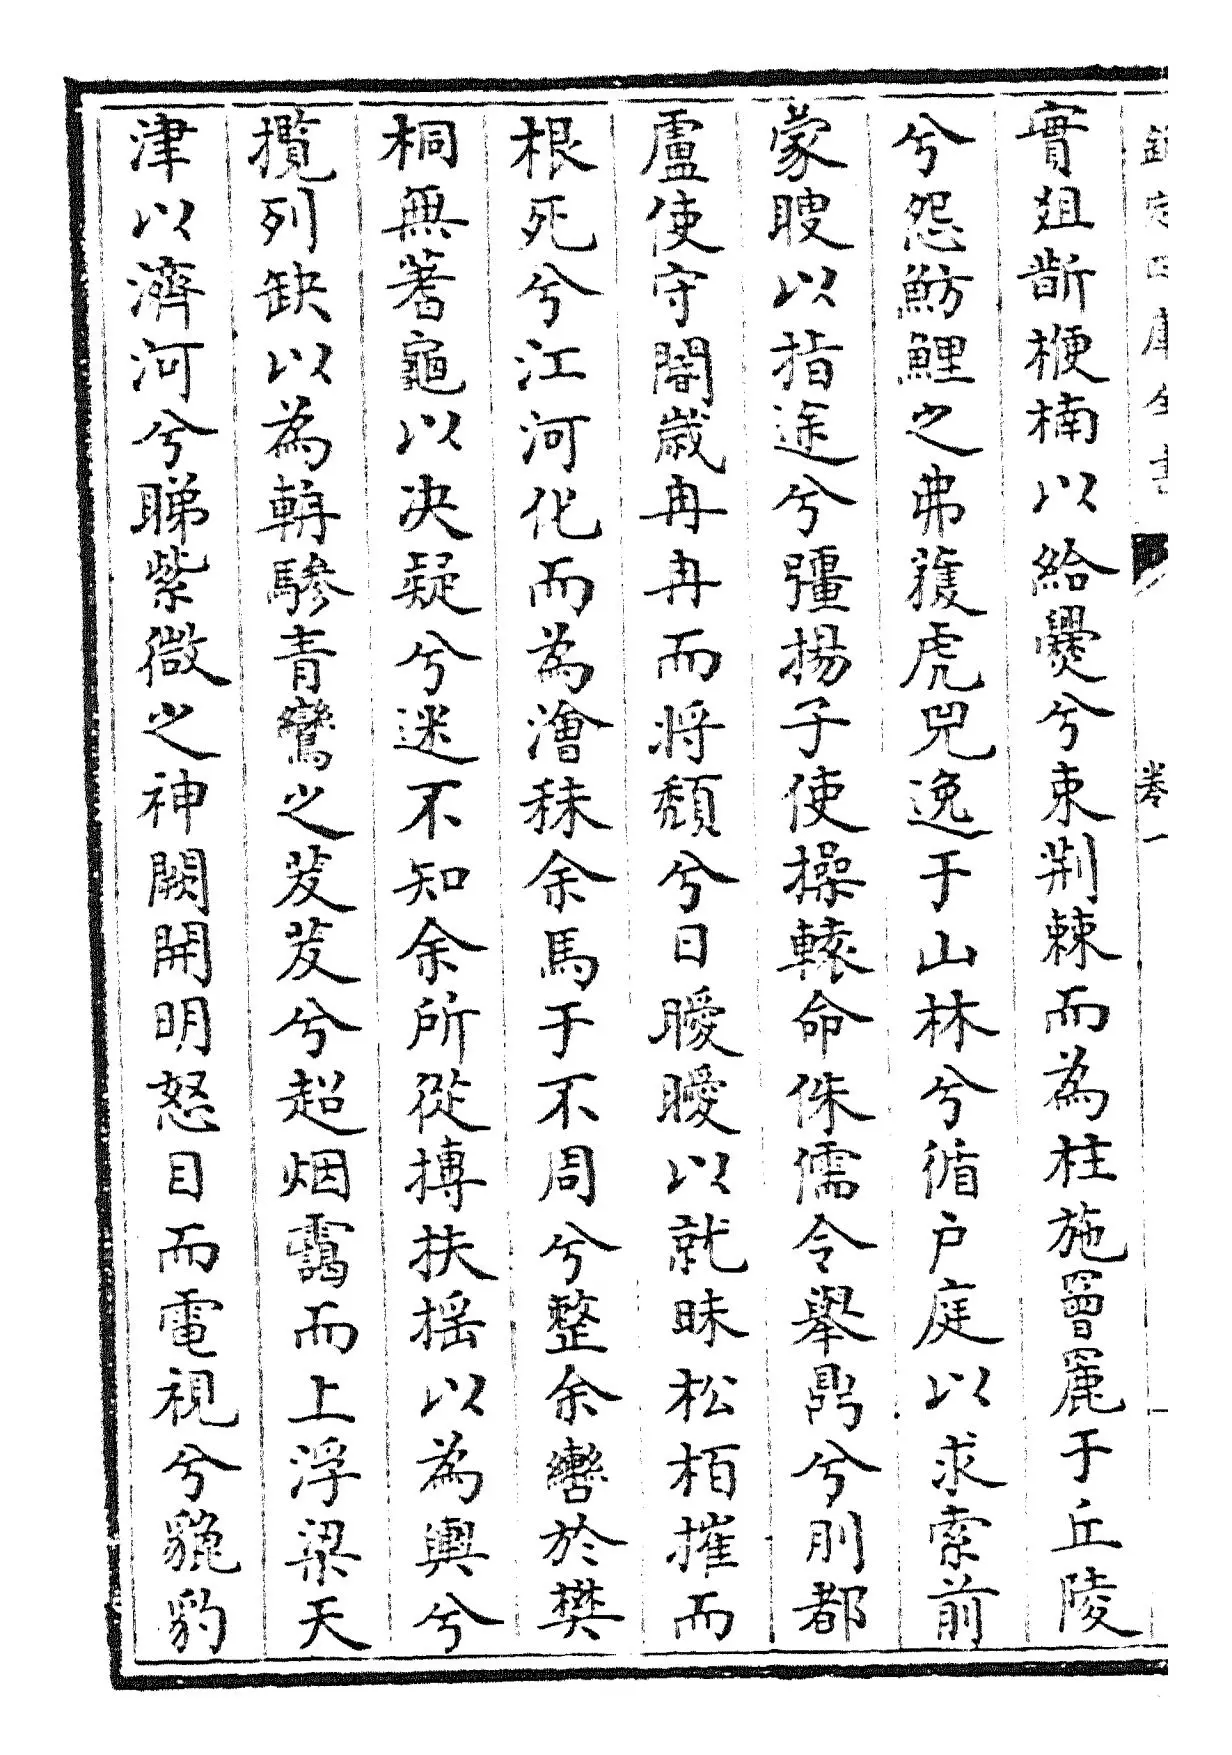 欽定四庫全書
卷一
實爼斮楩楠以給爨兮束荆棘而為柱施罾罷于丘陵
兮怨魴鯉之弗獲虎兕逸于山林兮循户庭以求索前
蒙瞍以指途兮彊揚子使操轅命侏儒令舉鼎兮刖都
盧使守閽歲冉冉而将頽兮日曖曖以就昧松栢摧而
根死兮江河化而為澮秣余馬于不周兮整余轡於樊
桐無蓍龜以決疑兮迷不知余所從摶扶揺以為輿兮
攬列缺以為輧驂青鸞之茇茇兮超烟靄而上浮梁天
津以濟河兮睇紫微之神闕開明怒目而電視兮豹